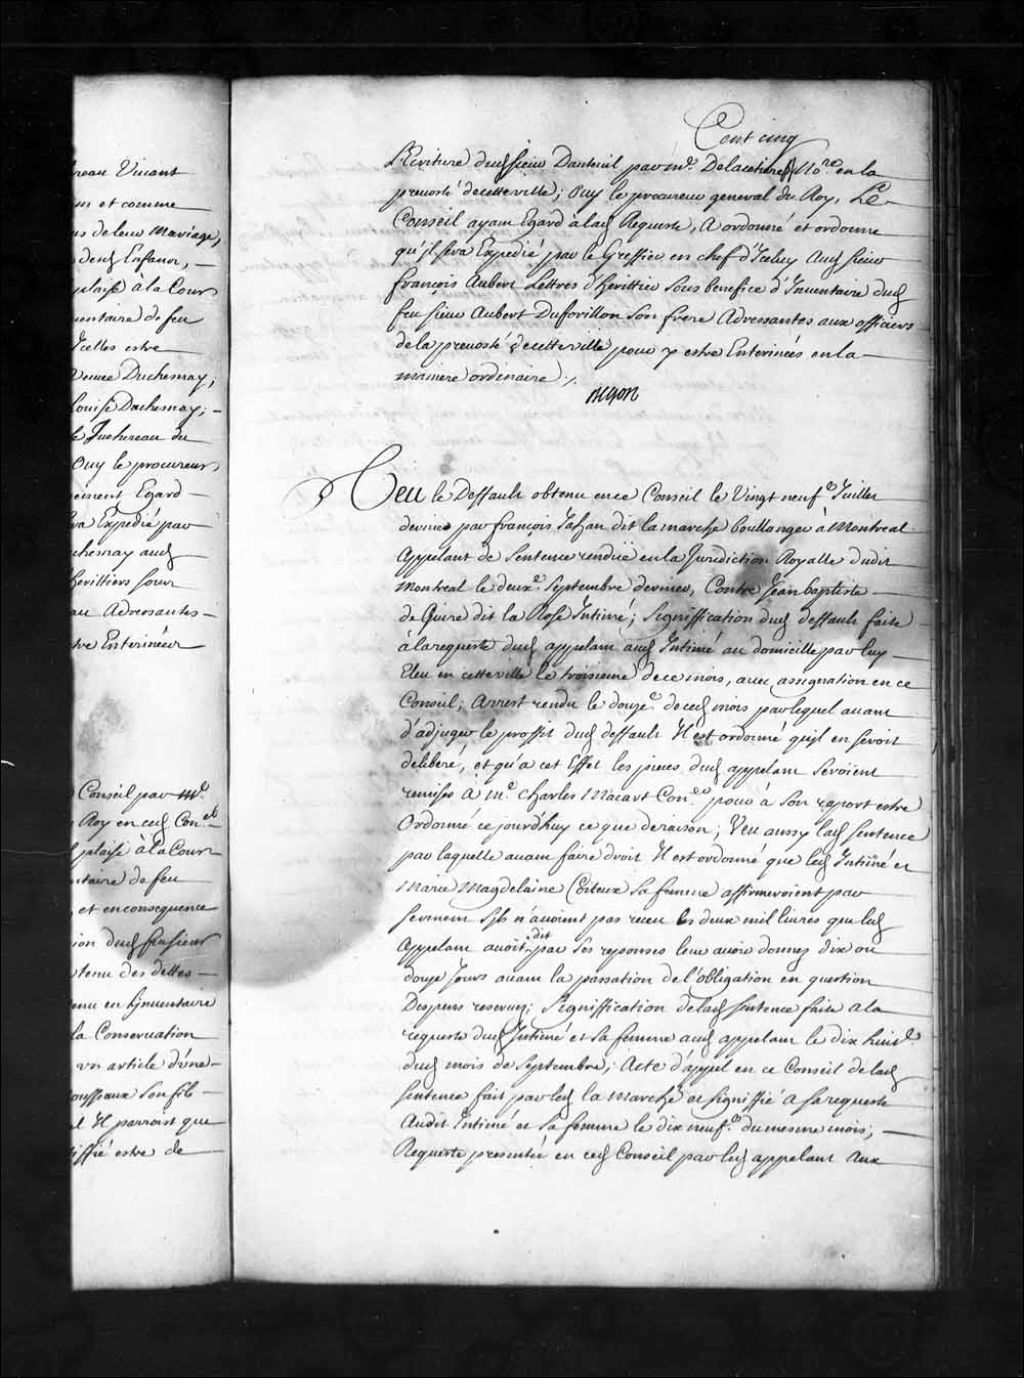 reau Vivant
m et comme
us de leur Mariage,
desd Enfans,
plaise à la Cour
entaire de feu
Icelles estre
Veuve Duchesnay;
Louise Duchesnay;
de Juchereau du
Ouy le procureur
ement Egard
ra Expedié par
chesnay aud
herittiers sous
au Adressantes
tre Enterinées
Conseil par Me.
Roy en ced Coner
plaise à la Cour
ntaire de feu
, et en consequence
ion dud
tenu des dettes
enu en Inventaire
la Conservation
un article d'une
ousseaux son fils
et Il parroist que
iffié estre de
Cent cinq
l'Ecriture dud sieur Dauteuil par me. Delacetiere Nore en la
prevosté de cette ville; Ouy le procureur general du Roy, Le
Conseil ayant Egard à lad Requeste, A ordonné et ordonne
qu'il sera Expedié par le Greffier en chef d'Iceluy Aud sieur
françois Aubert Lettres d'herittier sous benefice d'Inventaire dud
feu sieur Aubert Duforillon son frere Adressantes aux officiers
de la prevosté de cette ville pour y estre Enterinées en la
maniere ordinaire ./.
Begon
Veu le Deffault obtenu en ce Conseil le Vingt neufe Juillet
dernier par françois Jahan dit la marche boullanger à Montreal
Appelant de Sentence rendüe en la Jurisdiction Royalle dudit
Montreal le deuxe Septembre dernier, Contre Jean baptiste
de Guire dit la Rose Intimé; Signiffication dud deffault faite
à la requeste dud appelant aud Intimé au domicille par luy
Eleu en cette ville le troisieme de ce mois, avec assignation en ce
Conseil; Arrest rendu le douze de ced mois par lequel avant
d'adjuger le proffit dud deffault Il est ordonné quil en seroit
deliberé, et qu'a cet Effet les pieces dud appelant seroient
remises A me. Charles Macart Coner pour à son raport estre
Ordonné ce jourd'huy ce que de raison; Veu aussy lad sentence
par laquelle avant faire droit Il est ordonné que led Intimé et
Marie Magdelaine Coiteux sa femme affirmeroient par
serment Sils n'avoient pas receu les deux mil livres que led
Appelant avoit dit par ses reponses leur avoir donnez dix ou
douze Jours avant la passation de l'obligation en question
Despens reservez; Signiffication de lad sentence faite a la
requeste dud Intimé et sa femme aud appelant le dix huite
dud mois de Septembre; Acte d'appel en ce Conseil de lad
sentence fait par led la Marche et signiffié a sa requeste
Audit Intimé et sa femme le dix neufe du mesme mois;
Requeste presentée en ced Conseil par led appelant Aux